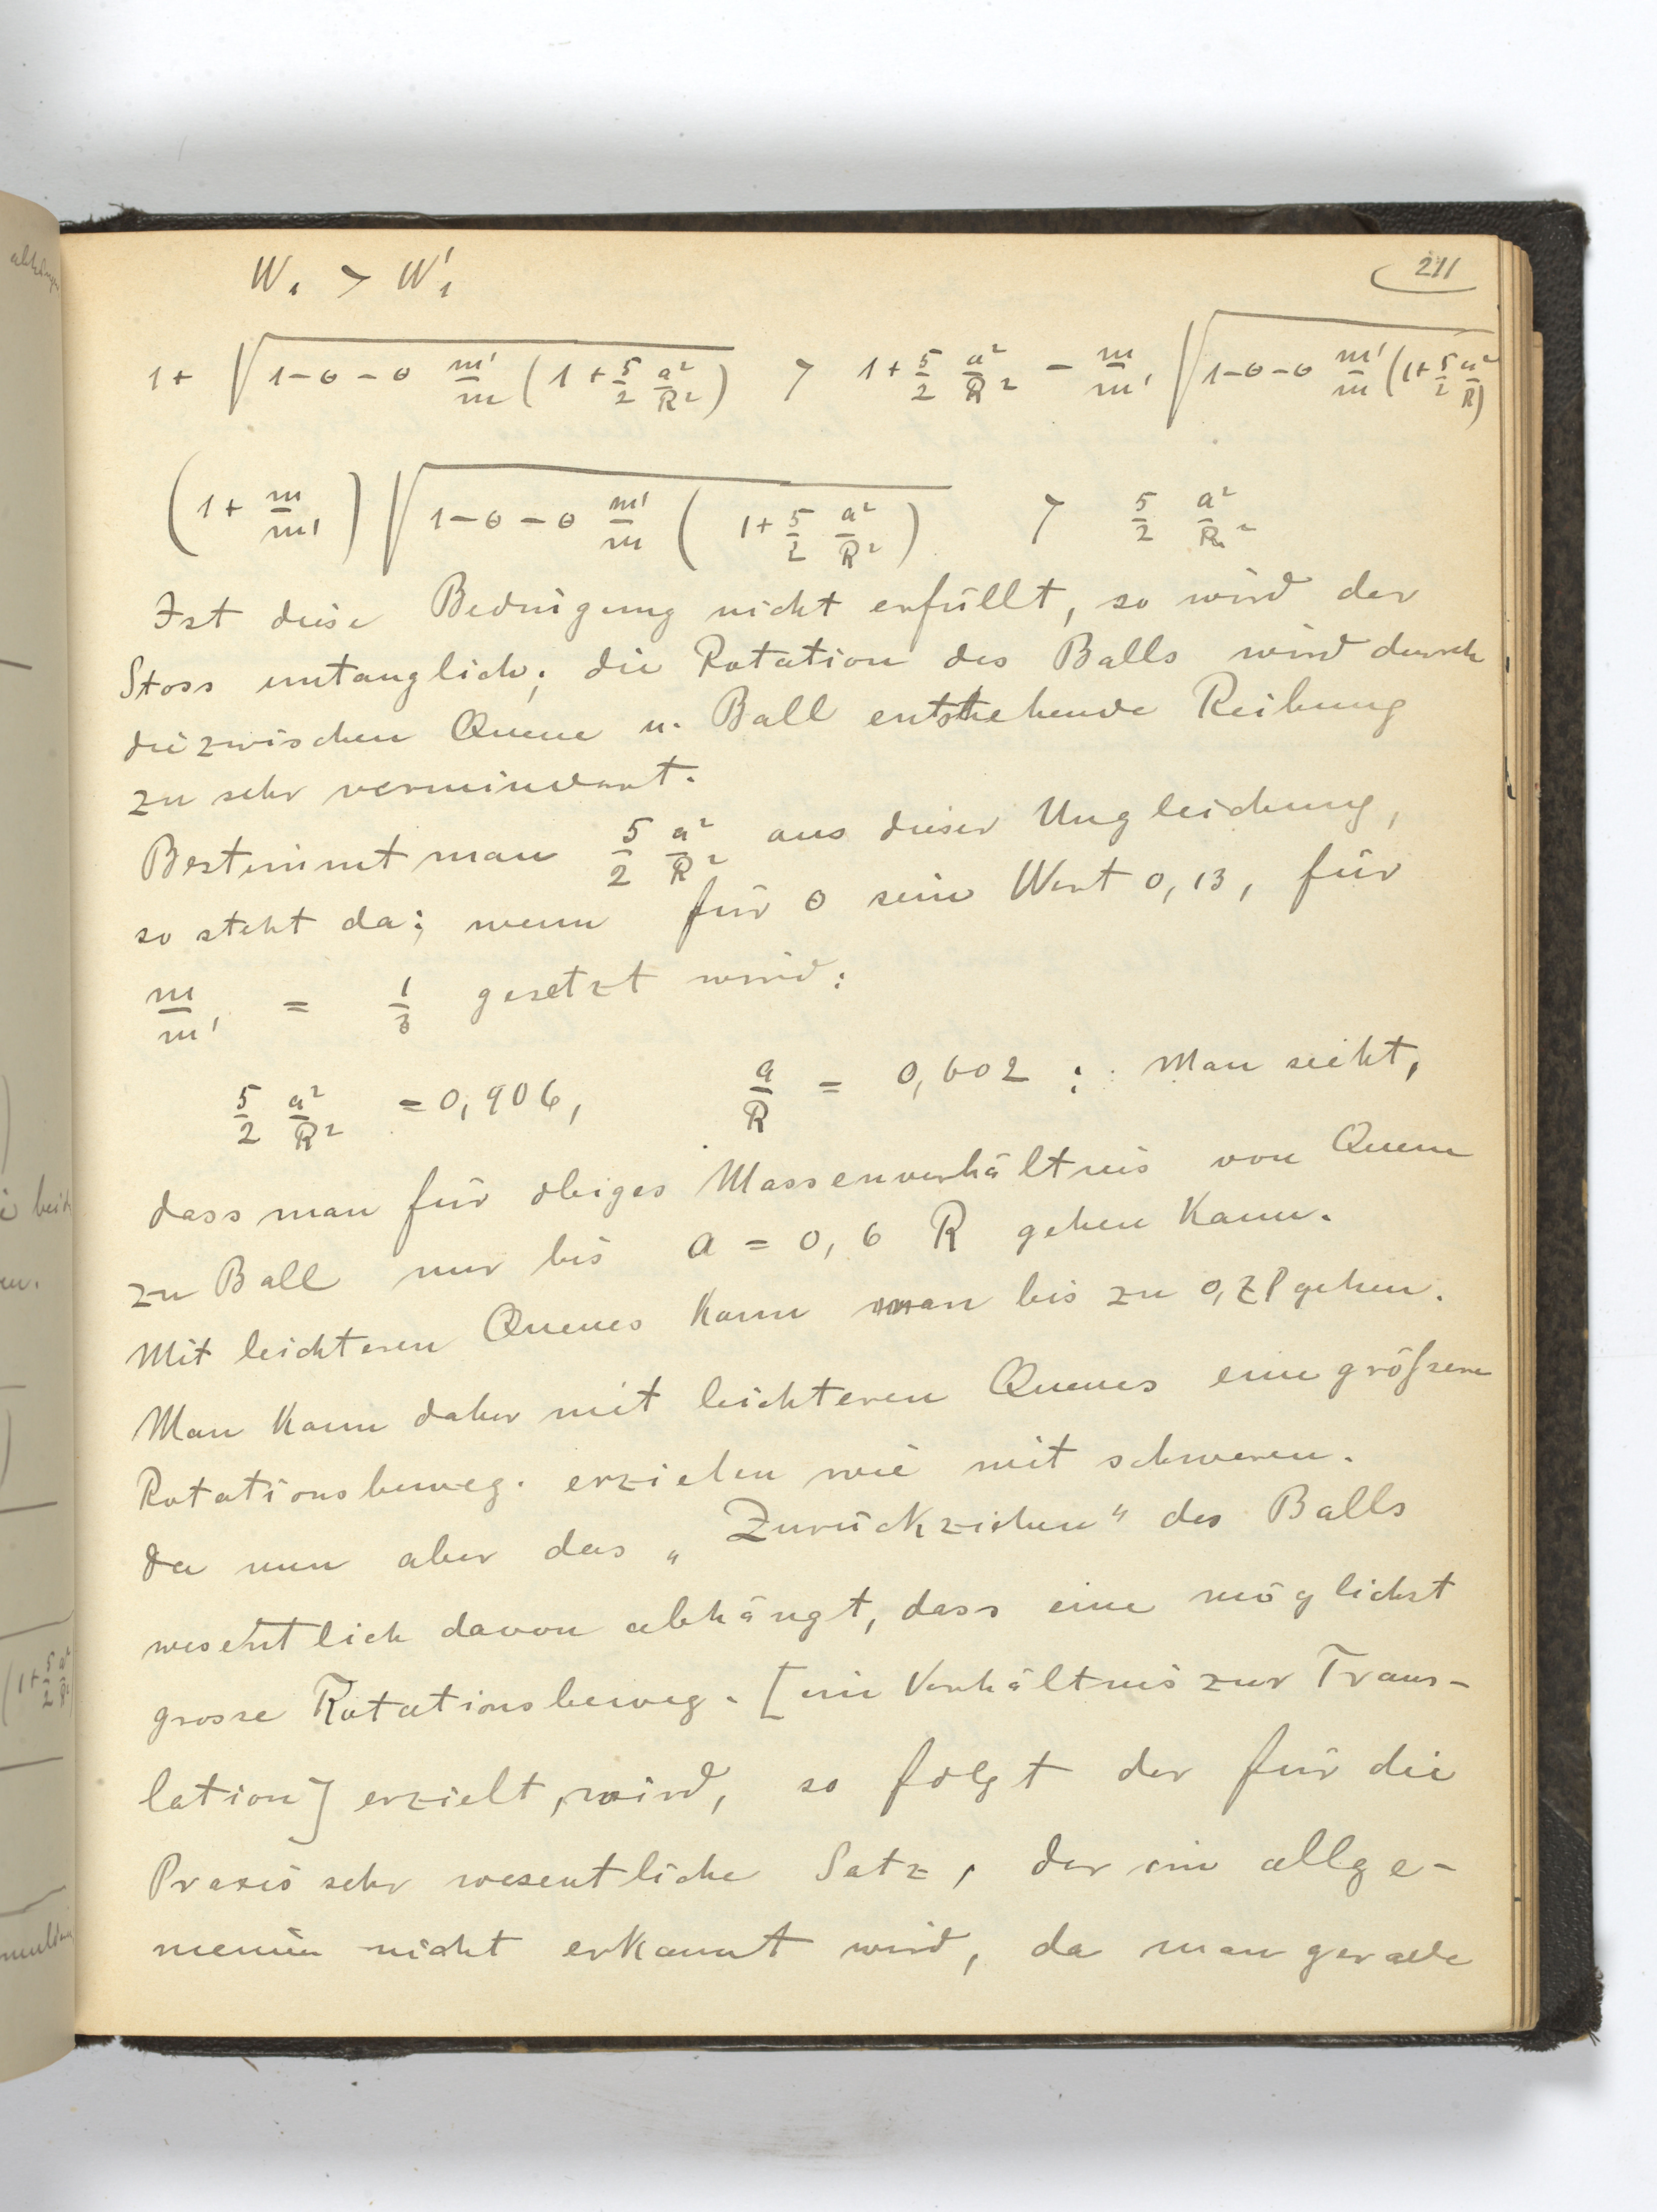 211
W₁ > W₁'
1 + √(1-θ-θ m'/m (1 + 5/2 a²/R²)) > 1 + 5/2 a²/R² - m/m' √(1-θ-θ m'/m (1 + 5/2 a²/R))
(1 + m/m') √(1-θ-θ m'/m (1 + 5/2 a²/R²)) > 5/2 a²/R²
Ist diese Bedingung nicht erfüllt, so wird der
Stoss untauglich; die Rotation des Balls wird durch
die zwischen Queue u. Ball entstehende Reibung
zu sehr vermindert.
Bestimmt man 5/2 a²/R² aus dieser Ungleichung,
so steht da; wenn für θ sein Wert 0,13, für
m/m' = 1/3 gesetzt wird:
5/2 a²/R² = 0,906, a/R = 0,602 ; Man sieht,
dass man für obiges Massenverhältnis von Queue
zu Ball nur bis a = 0,6 R gehen kann.
Mit leichteren Queues kann man bis zu gehen.
Man kann daher mit leichteren Queues eine größere
Rotationsbeweg. erzielen wie mit schweren.
Da nun aber das „Zurückziehen" des Balls
wesentlich davon abhängt, dass eine möglichst
grosse Rotationsbeweg. [im Verhältnis zur Trans-
lation] erzielt, wird, so folgt der für die
Praxis sehr wesentliche Satz, der im allge-
meinen nicht erkannt wird, da man gerade
(1+ 5/2 a²/R²)